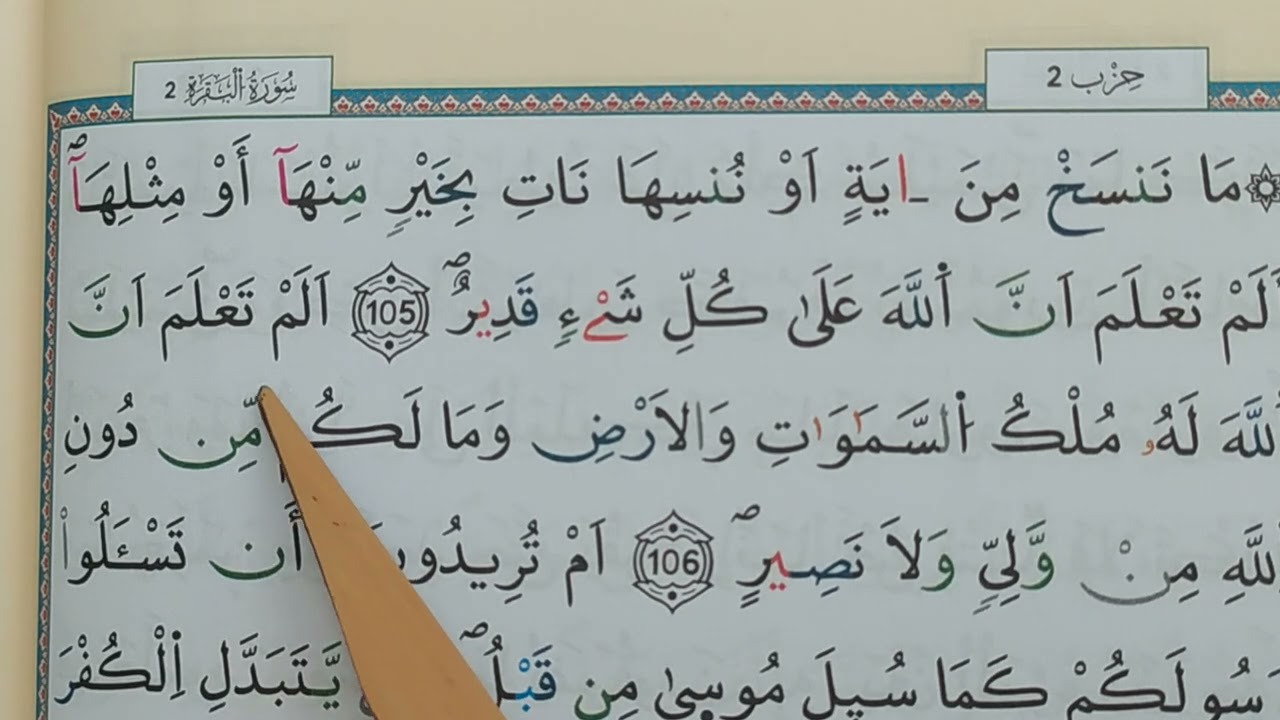 سُورَةُ الْبَقَرَةِ 2
حِزْب 2
۞مَا نَنسَخْ مِنَ ـ ايَةٍ اَوْ نُنسِهَا نَاتِ بِخَيْرٖ مِّنْهَآ أَوْ مِثْلِهَآۖ
أَلَمْ تَعْلَمَ اَنَّ اَ۬للَّهَ عَلَىٰ كُلِّ شَےْءٖ قَدِيرٌۖ 105 اَلَمْ تَعْلَمَ اَنَّ
اَ۬للَّهَ لَهُۥ مُلْكُ اُ۬لسَّمَٰوَٰتِ وَالَارْضِ وَمَا لَكُم مِّن دُونِ
اِ۬للَّهِ مِنْ وَّلِيّٖ وَلَا نَصِيرٍۖ 106 اَمْ تُرِيدُونَ أَن تَسْـَٔلُواْ
رَسُولَكُمْ كَمَا سُئِلَ مُوسىٰ مِن قَبْلُۖ يَّتَبَدَّلِ اِ۬لْكُفْرَ